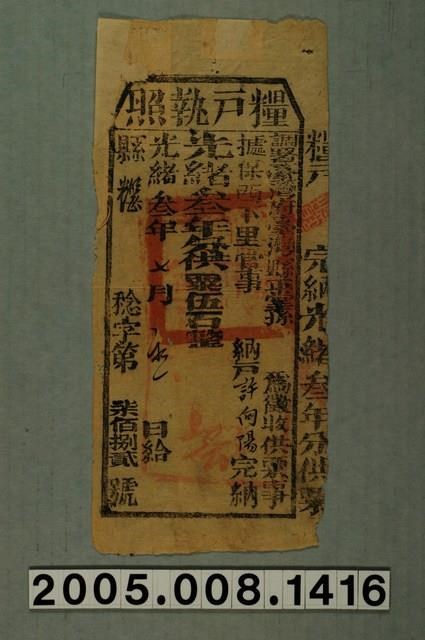 糧戶執照
糧戶
完納光緒叁年分供粟
為徵收供粟事
據保西下里管事
納戶許向陽完納
光緒叁年分供粟伍石
光緒叁年七月
日給
縣
稔字第柒佰捌貳號
2005.008.1416